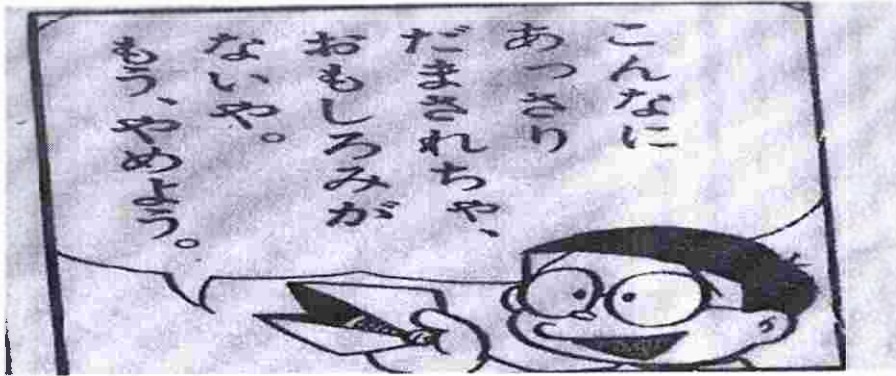 こんなに
あっさり
だまされちゃ、
おもしろみが
ないや。
もう、やめよう。